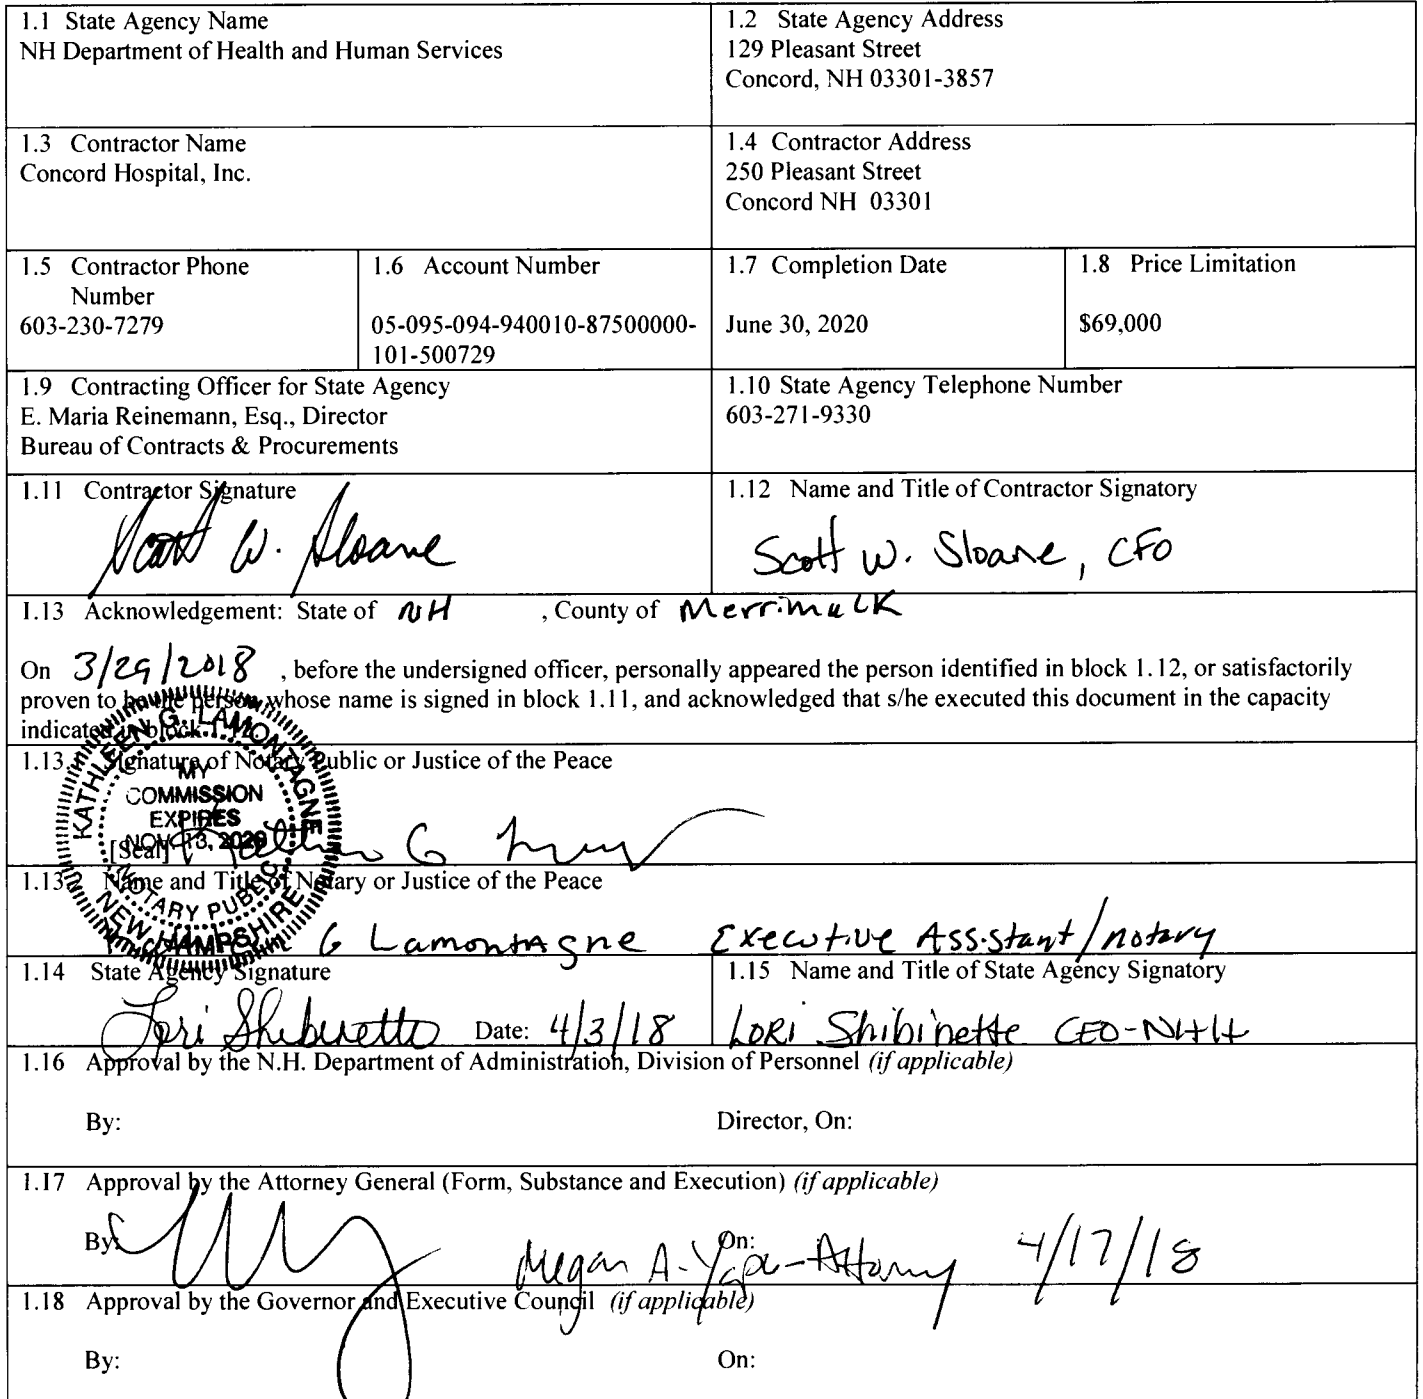 1.1 State Agency Name
NH Department of Health and Human Services
1.2 State Agency Address
129 Pleasant Street
Concord, NH 03301-3857
1.3 Contractor Name
Concord Hospital, Inc.
1.4 Contractor Address
250 Pleasant Street
Concord NH 03301
1.5 Contractor Phone
Number
603-230-7279
1.6 Account Number
05-095-094-940010-87500000-
101-500729
1.7 Completion Date
June 30, 2020
1.8 Price Limitation
$69,000
1.9 Contracting Officer for State Agency
E. Maria Reinemann, Esq., Director
Bureau of Contracts & Procurements
1.10 State Agency Telephone Number
603-271-9330
1.11 Contractor Signature
Scott W. Sloane
1.12 Name and Title of Contractor Signatory
Scott W. Sloane, CFO
1.13 Acknowledgement: State of NH , County of Merrimack
On 3/29/2018 , before the undersigned officer, personally appeared the person identified in block 1.12, or satisfactorily
proven to be the person whose name is signed in block 1.11, and acknowledged that s/he executed this document in the capacity
indicated in block
1.13. Signature of Notary Public or Justice of the Peace
KATHLEEN G. LAMONTAGNE
MY
COMMISSION
EXPIRES
NOV. 13, 2020
NOTARY PUBLIC
NEW HAMPSHIRE
[Seal]
1.13. Name and Title of Notary or Justice of the Peace
G Lamontagne Executive Assistant/notary
1.14 State Agency Signature
Lori Shibinette Date: 4/3/18
1.15 Name and Title of State Agency Signatory
LORI Shibinette CEO-NHH
1.16 Approval by the N.H. Department of Administration, Division of Personnel (if applicable)
By: Director, On:
1.17 Approval by the Attorney General (Form, Substance and Execution) (if applicable)
By: On:
Megan A. - Attorney 4/17/18
1.18 Approval by the Governor and Executive Council (if applicable)
By: On: